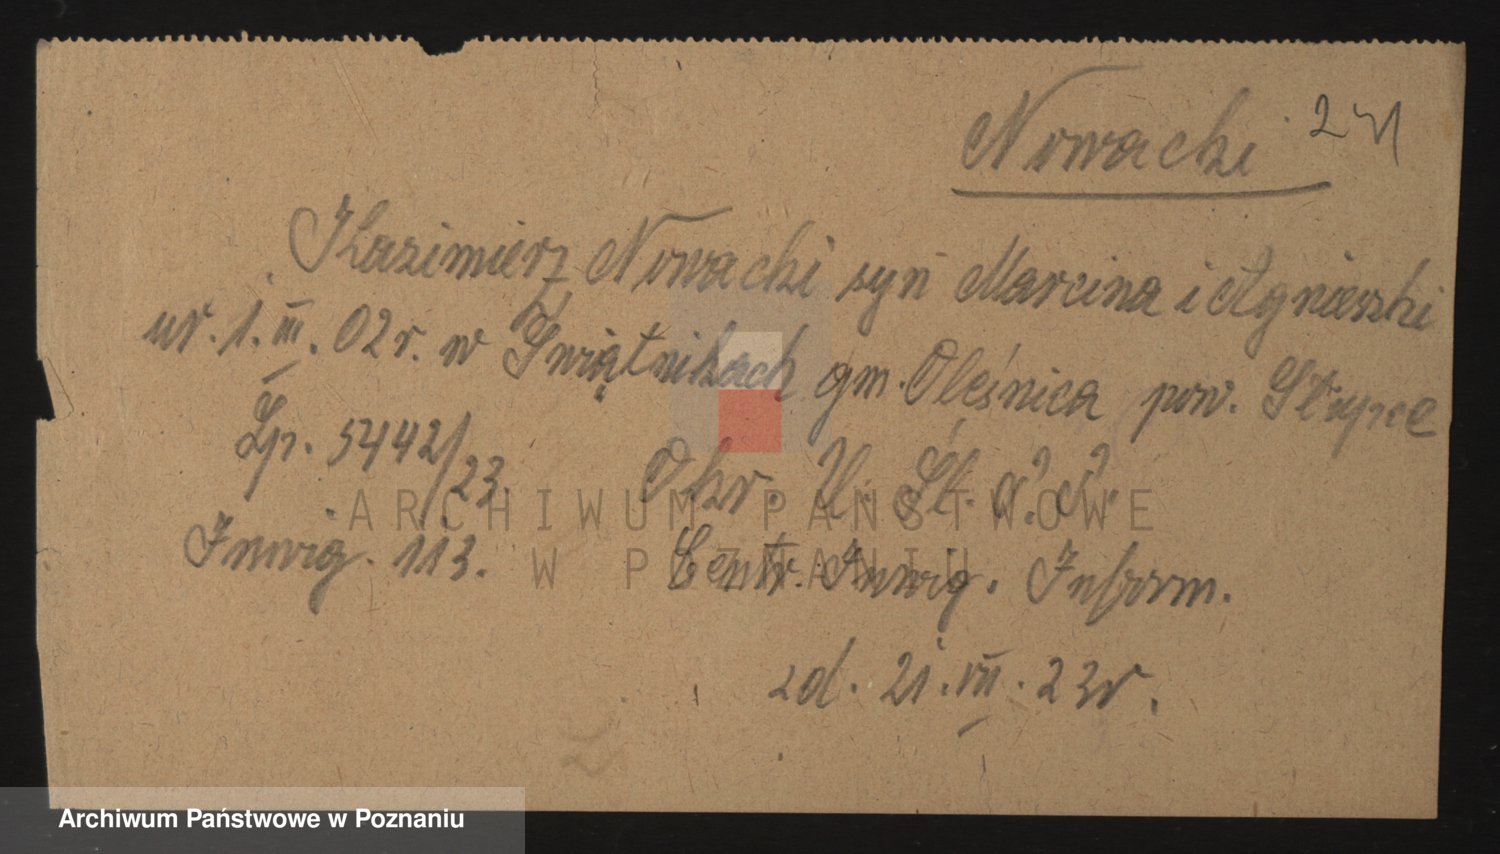 Nowacki
Kazimierz Nowacki syn Marcina i Agnieszki
ur. 1. III. 02 r. w Świątnikach gm. Oleśnica pow. Słupce
Lp. 5442/23. Okr. U.
Inwig. 113. Centr. Inwig. Inform.
zd. 21. VII. 23 r.
ARCHIWUM PAŃSTWOWE
W POZNANIU
Archiwum Państwowe w Poznaniu